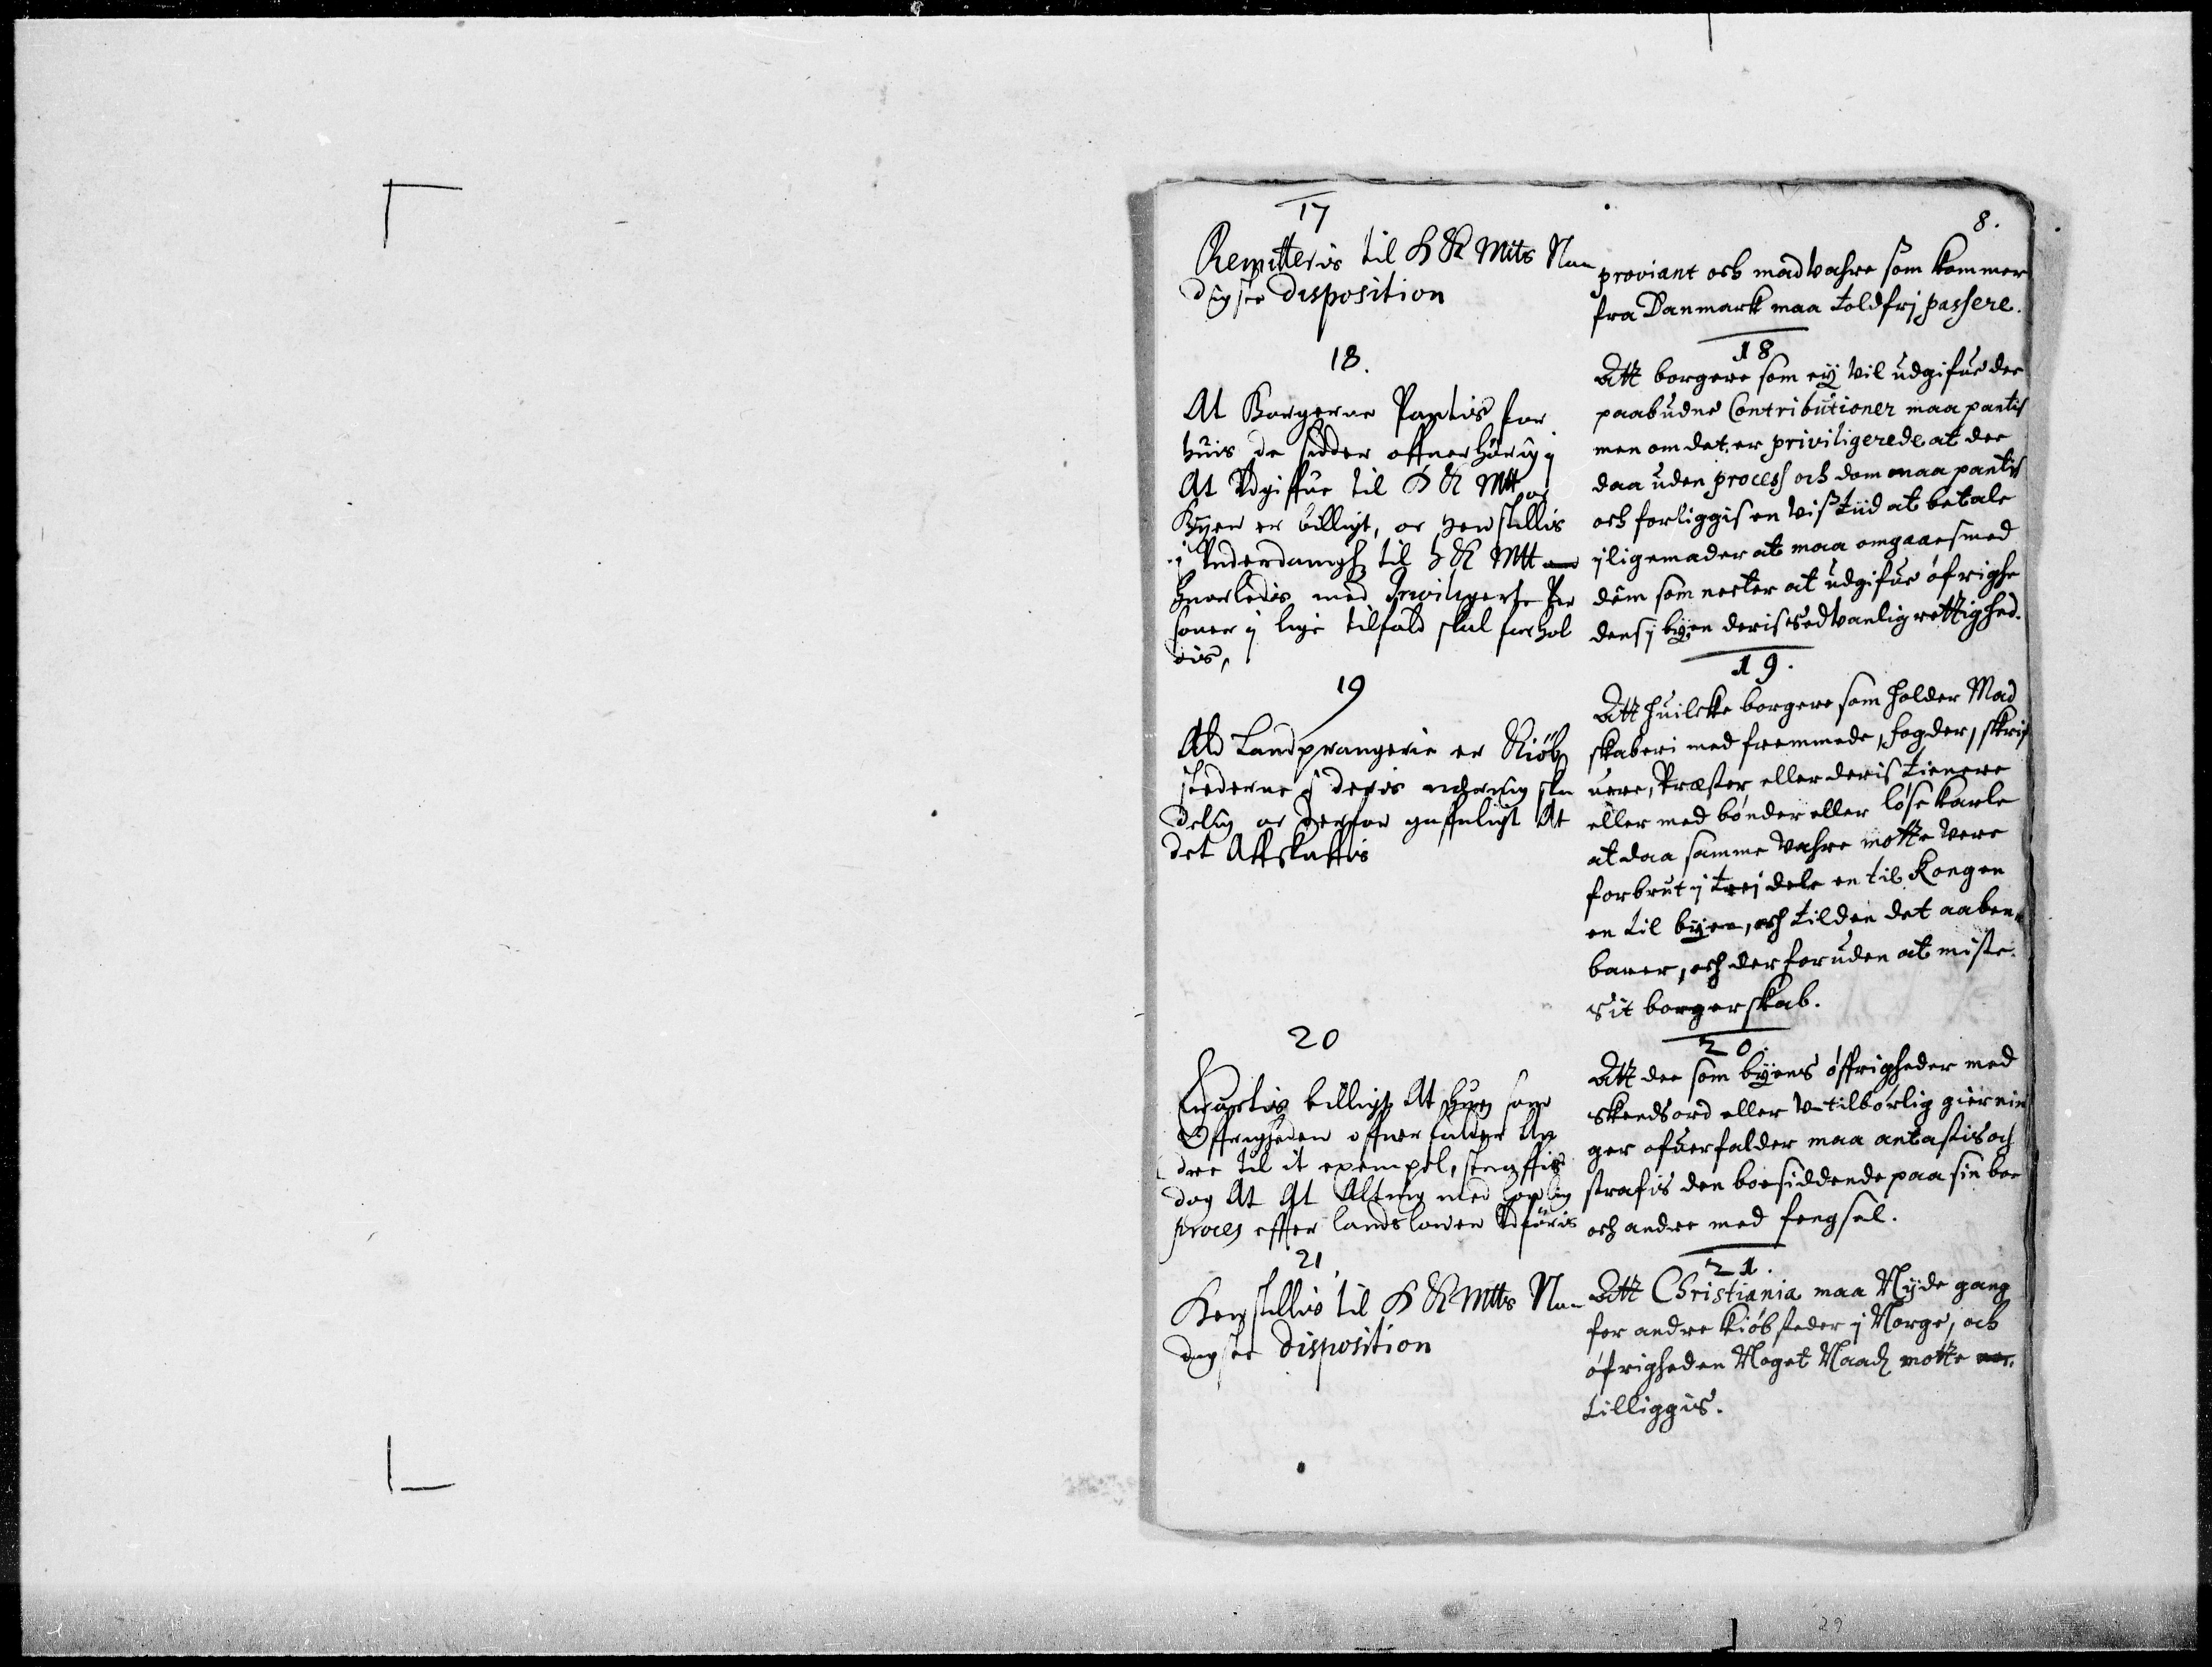 17
Remitteris til H K Mtts Naa
digste disposition
18.
At Borgerne Pantis for
huis de sidder offuerhörig i
At Udgiffue til H K Mtt oc
Byen er billigt, oc henstillis
i Underdanigh til H K Mtt
huorledis med Priviligerte Per
soner i lige tilfald skal forhol
dis,
19
Ald Landprangerie er Kiöb
stederne i deris nehring ska
delig oc derfor gaffnligt At
det Affskaffis
20
Eractis billigt At huo som
Öffrigheden offuerfalder An
dre til it exempel, straffis
dog At At Alting med lovlig
proces effter landslowen Udföris
21
Henstillis til H K Mtts Naa
digste disposition
8.
proviant och madvahre som kommer
fra Danmark maa toldfrj passere.
18
Att borgere som ey vil udgifue der
paabudne Contributioner maa pantis
men om det er priviligerede at der
daa uden process och dom maa pantis
och forliggis en viss tiid at betale
i ligemader at maa omgaaes med
dem som necter at udgifue öfrighe
dens i byen deris sedvanlig rettighed.
19.
Att huilcke borgere som holder Mad
skaberi med fremmede, fogder, skrif
uere, Præster eller deris tienere
eller med bönder eller löse karle
at daa samme vahre motte vere
forbrut i trej dele en til Kongen
en til byen, och til den det aaben
barer, och der foruden at miste
sit borgerskab.
20.
Att der som byens öffrigheder med
skendsord eller v-tilbörlig giernin
ger ofuerfalder maa antastis och
strafis den boesiddende paa sin boe
och andre med fengsel.
21.
Att Christiania maa Nyde gang
for andre kiöbsteder i Norge, och
öfrigheden Noget Naad motte
tilliggis.
29